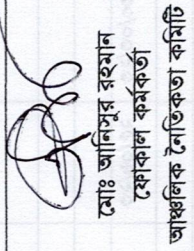 মোঃ আনিসুর রহমান
ফোকাল কর্মকর্তা
আঞ্চলিক নৈতিকতা কমিটি